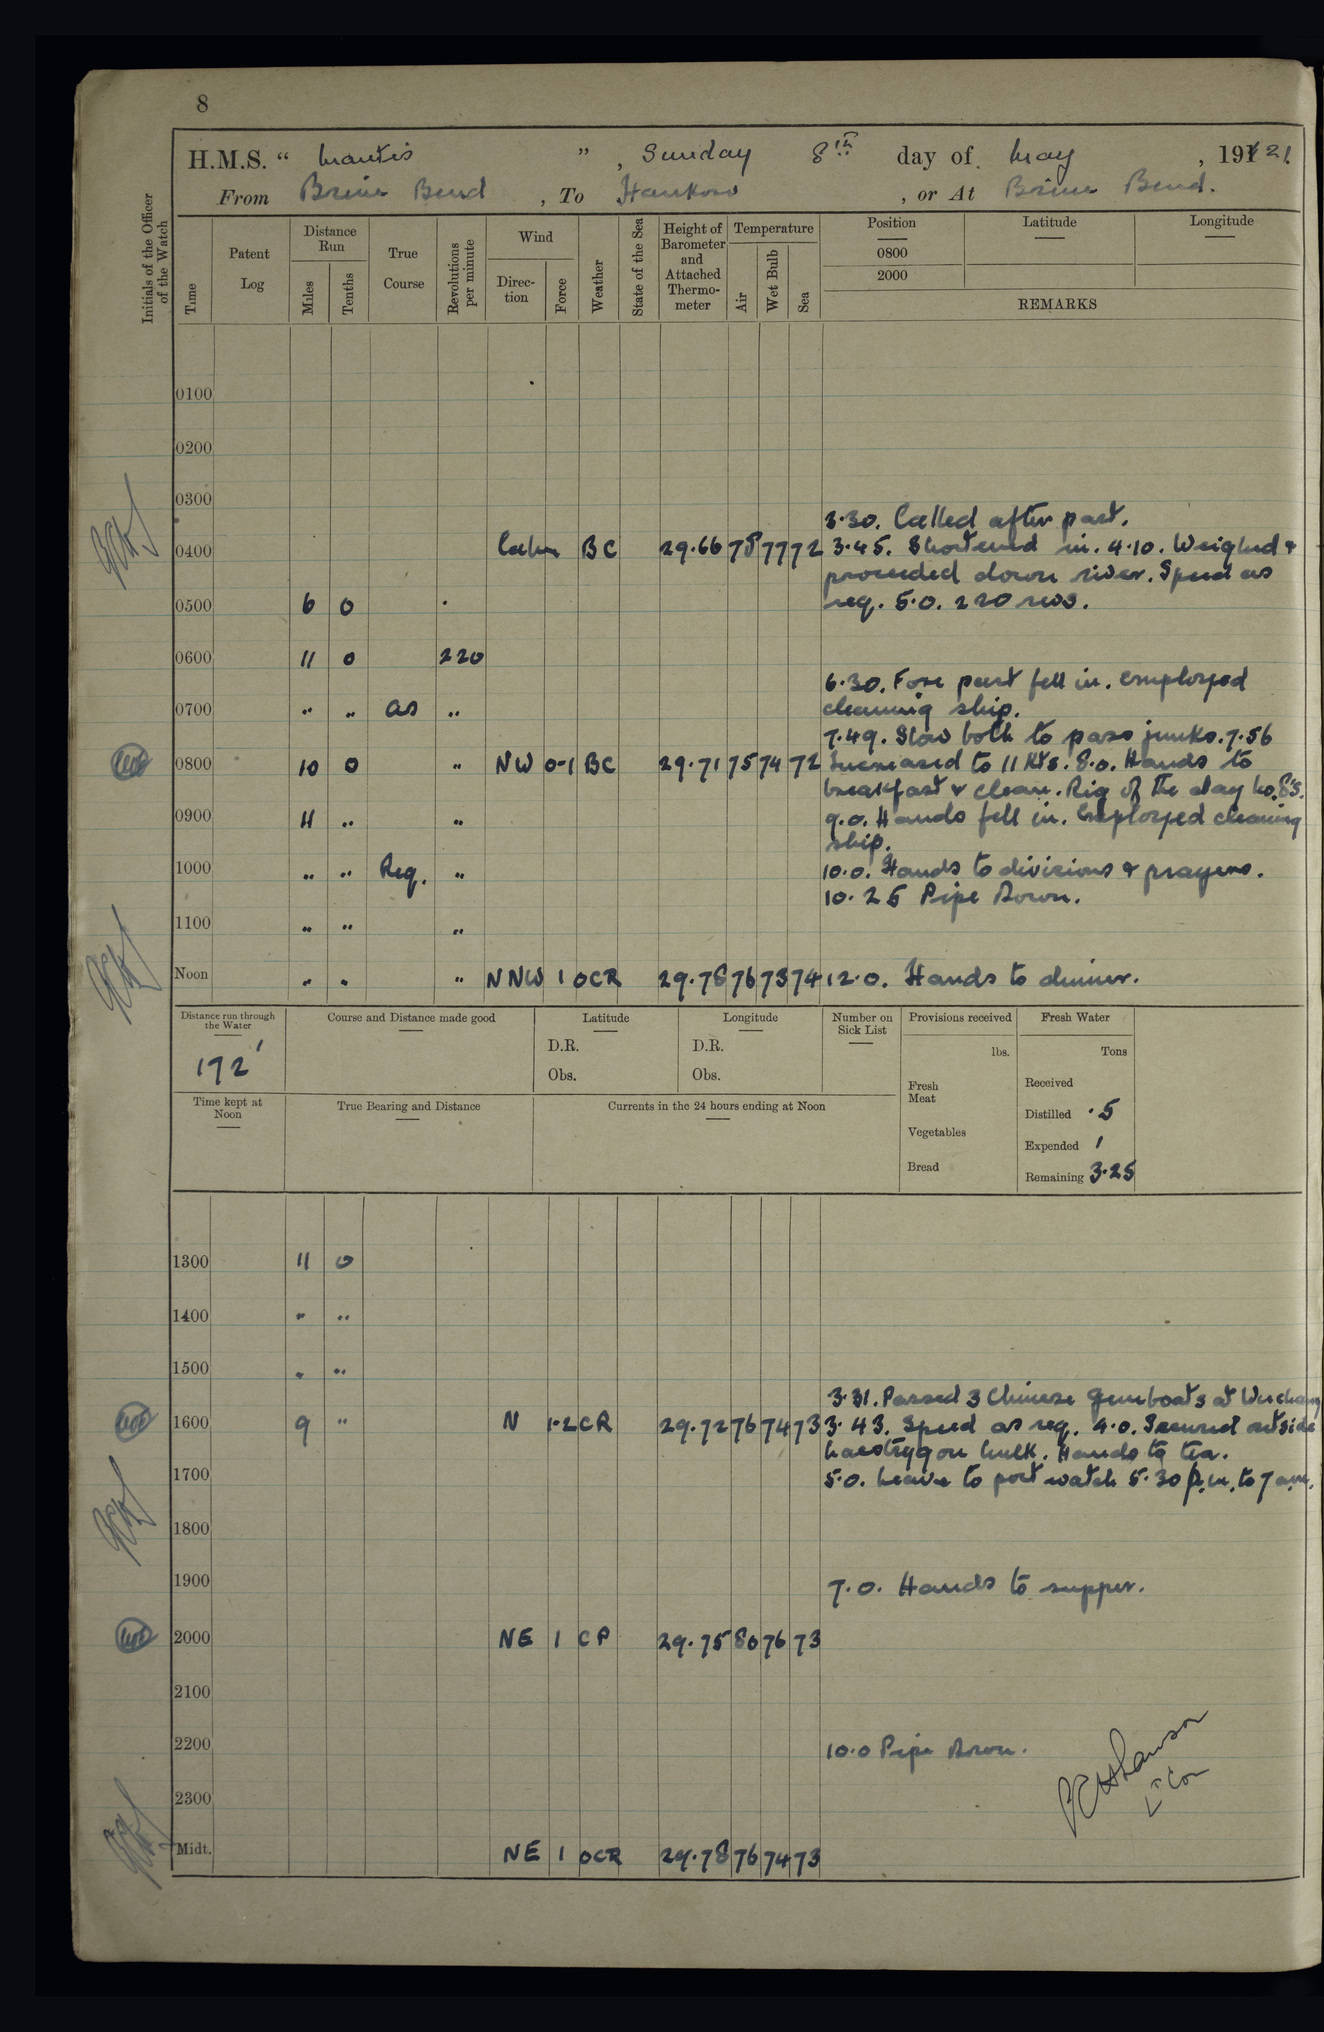 8
H.M.S. " Mantis " , Sunday 8th day of May , 1921.
From Brine Bend , To Hankow , or At Brine Bend.
Initials of the Officer of the Watch
Time
Patent Log
Distance Run
Miles
Tenths
True Course
Revolutions per minute
Wind
Direction
Force
Weather
State of the Sea
Height of Barometer and Attached Thermometer
Temperature
Air
Wet Bulb
Sea
Position
Latitude
Longitude
0800
2000
REMARKS
0100
0200
0300
3.30. Called after part.
0400 Calm BC 29.66 78 77 72 3.45. Shortened in. 4.10. Weighed &
proceeded down river. Speed as
0500 6 0 req. 5.0. 220 revs.
0600 11 0 220
6.30. Fore part fell in. Employed
0700 " " as " cleaning ship.
7.49. Slow both to pass junks. 7.56
0800 10 0 " NW 0-1 BC 29.71 75 74 72 Increased to 11 Kts. 8.0. Hands to
breakfast & clean. Rig of the day No. 8's.
0900 11 " " 9.0. Hands fell in. Employed cleaning
ship.
1000 " " Req. " 10.0. Hands to divisions & prayers.
10.25 Pipe Down.
1100 " " "
Noon " " " NNW 1 OCR 29.78 76 73 74 12.0. Hands to dinner.
Distance run through the Water
172'
Course and Distance made good
Latitude
D.R.
Obs.
Longitude
D.R.
Obs.
Number on Sick List
Provisions received
lbs.
Fresh Meat
Vegetables
Bread
Fresh Water
Tons
Received
Distilled .5
Expended 1
Remaining 3.25
Time kept at Noon
True Bearing and Distance
Currents in the 24 hours ending at Noon
1300 11 0
1400 " "
1500 " "
3.31. Passed 3 Chinese Gunboats at Wuchang
1600 9 " N 1-2 CR 29.72 76 74 73 3.43. Speed as req. 4.0. Secured outside
Laestrygon hulk. Hands to tea.
1700 5.0. Leave to port watch 5.30 p.m. to 7 a.m.
1800
1900 7.0. Hands to supper.
2000 NE 1 CP 29.75 80 76 73
2100
2200 10.0 Pipe Down.
Lt Com
2300
Midt. NE 1 OCR 29.78 76 74 73